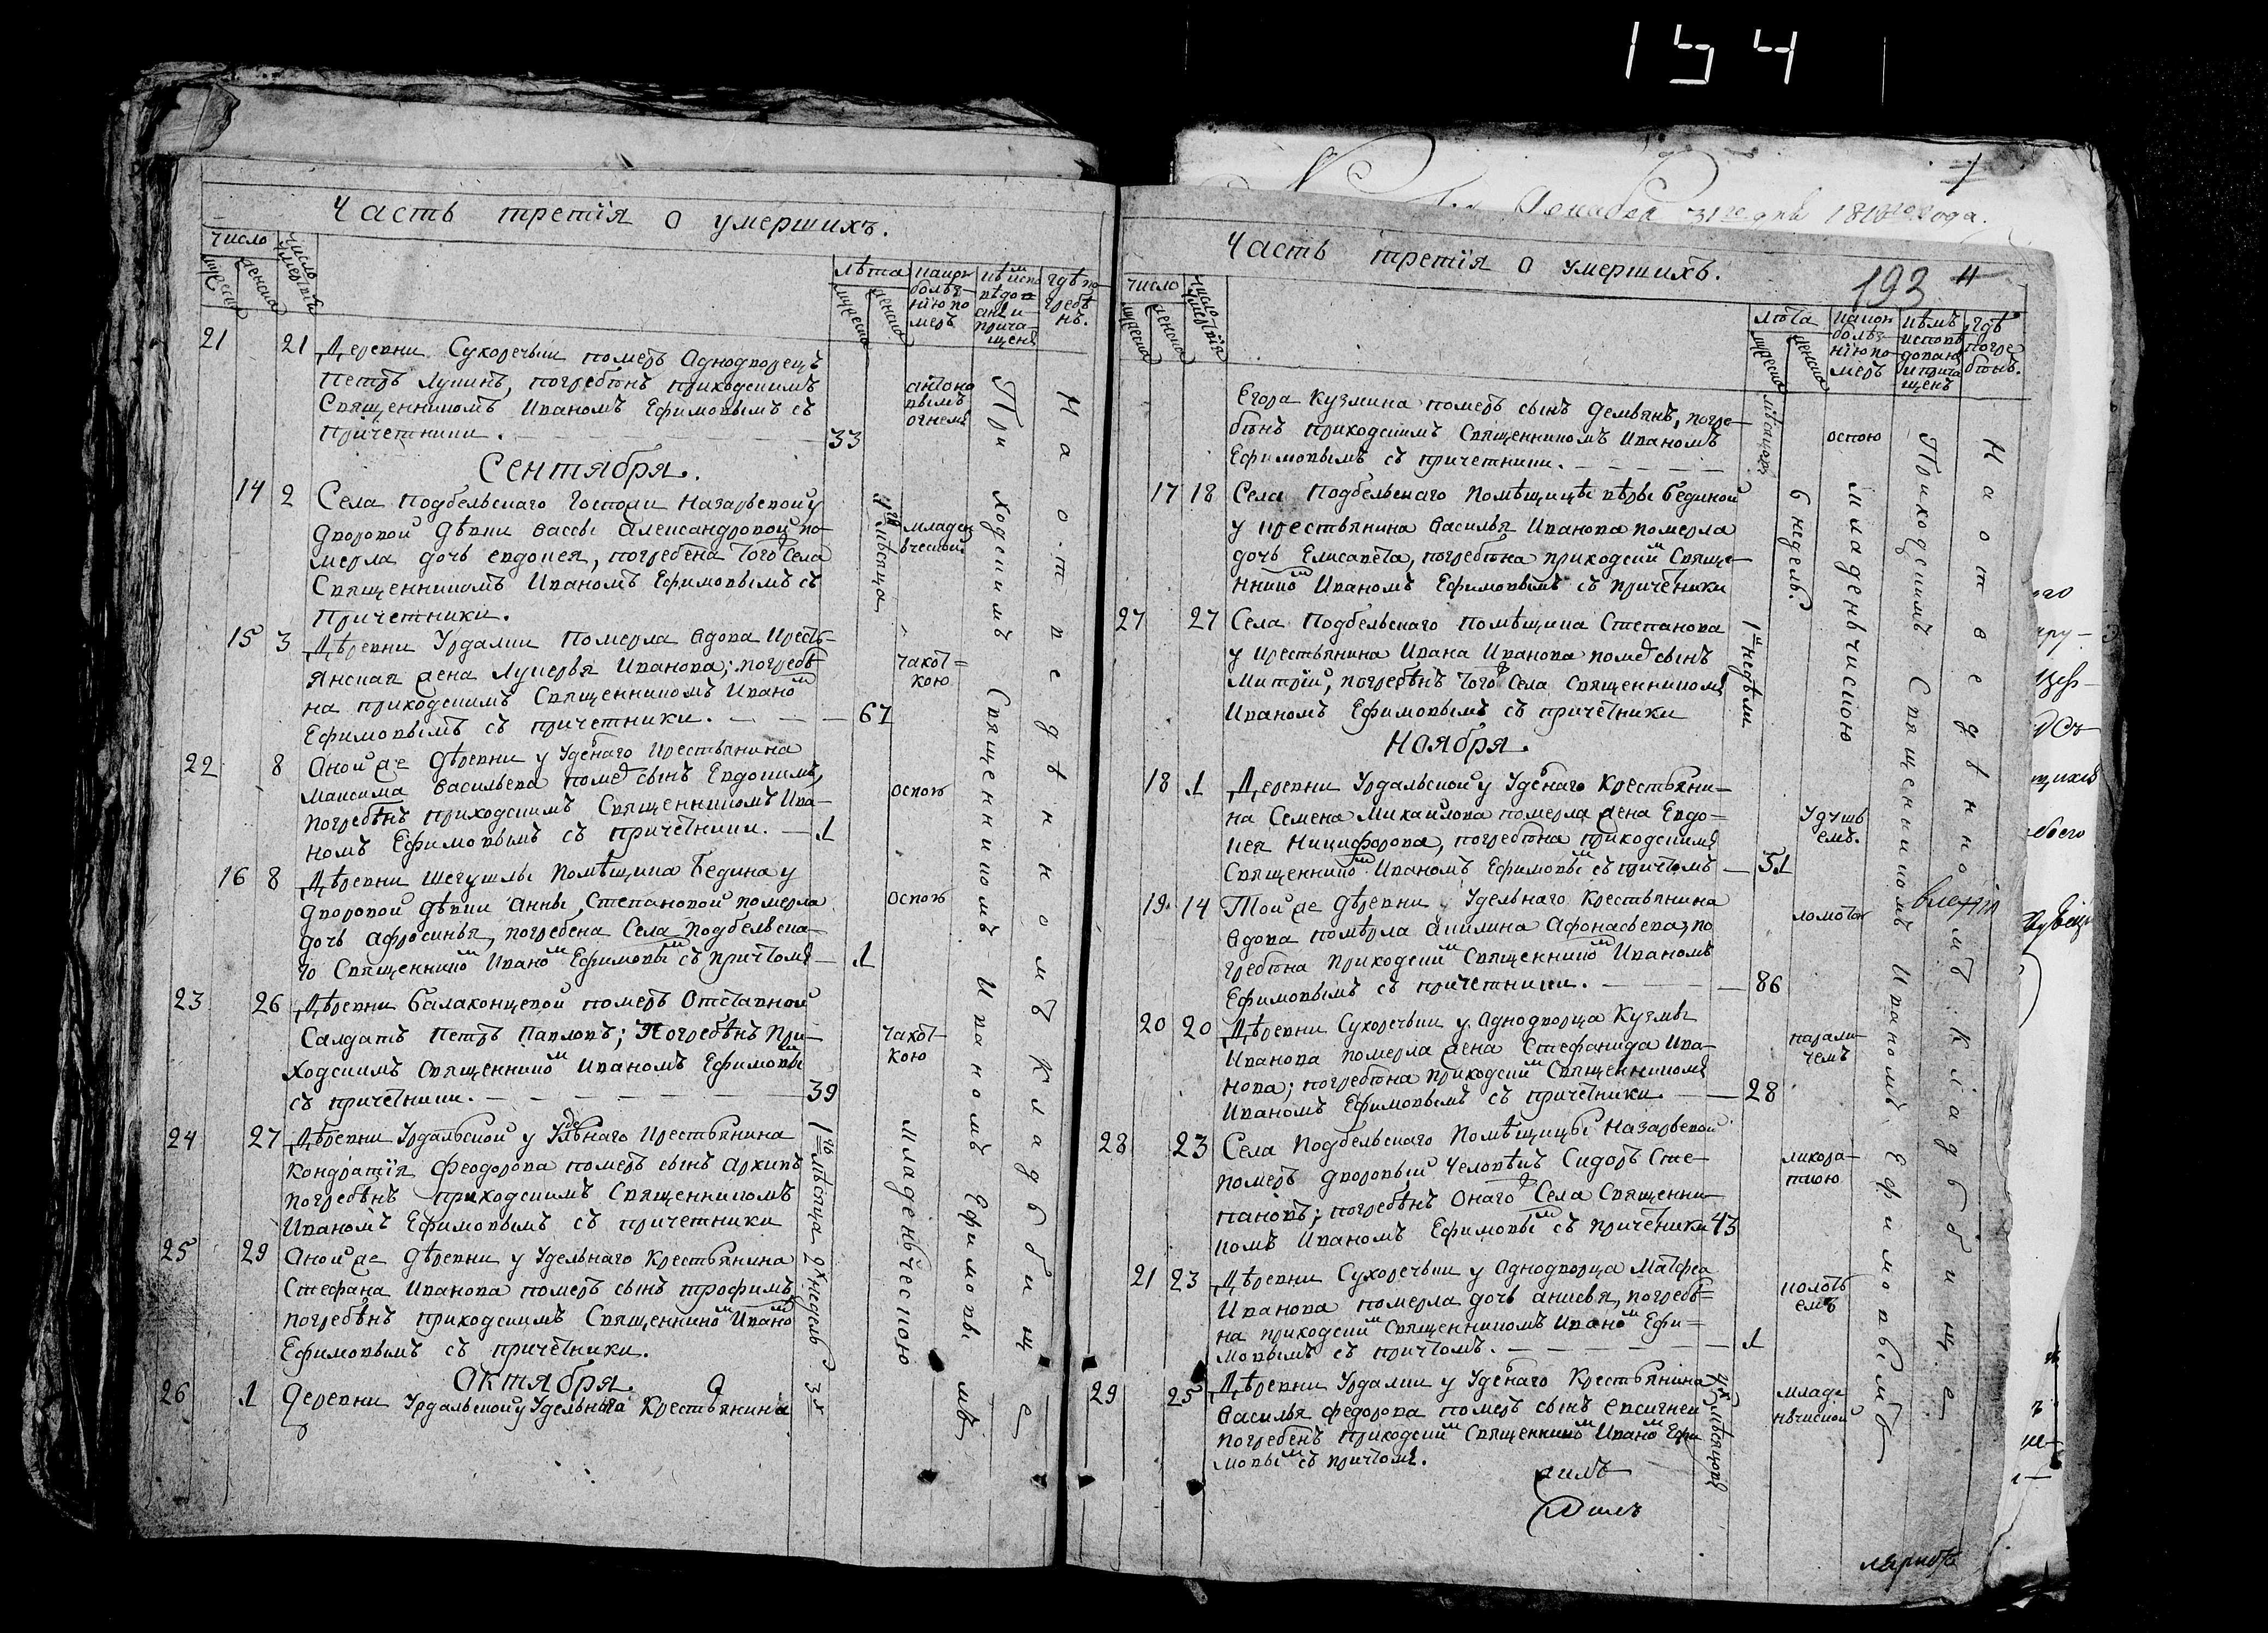 154
Декабря 31го дня 1816го года.
Часть третія о умершихъ.
Число
Число умертвія
мужеска
женска
Лѣта
мужеска
женска
какою болѣзнію померъ
кѣмъ исповѣдованъ и причащенъ
гдѣ погребѣнъ.
21 21 Деревни Сухоречки померъ Аднодворецъ
Петръ Лукинъ, погребѣнъ приходскимъ
Священникомъ Иваномъ Ефимовымъ съ
причетники. 33
антоновымъ огнемъ
Сентября.
14 2 Села Подбельскаго Госпожи Назарьевой у
дворовой дѣвки Вассы Александровой по-
мерла дочь Евдокея, погребена того Села
Священникомъ Иваномъ Ефимовымъ съ
Причетники.
мѣсяца
15 3 Дѣревни Урдалки Померла вдова Кресть-
янская жена Лукерья Иванова; погребѣ-
на приходскимъ Священникомъ Ивано м
Ефимовымъ съ причетники. 67
чахот=
кою
22 8 Оной же дѣревни у Удѣнаго Крестьянина
Максима Васильева поме сынъ Евдокимъ,
погребѣнъ приходскимъ Священникомъ Ива-
номъ Ефимовымъ съ причетники. 1
оспою
16 8 Дѣревни Шегушлы Помѣщика Бедина у
дворовой дѣвки Анны Степановой померла
дочь Афросинья, погребена Села Подбельска-
го Священнико м Ивано м Ефимовы м съ причтомъ 1
оспою
23 26 Дѣревни Балаконцевой померъ Отставной
Салдатъ Петръ Павловъ; Погребѣнъ При-
ходскимъ Священнико м Иваномъ Ефимовы м
съ причетники. 39
чахот-
кою
24 27 Дѣревни Урдальской у Удельнаго Крестьянина
Кондратія Феодорова померъ сынъ Архипъ
погребѣнъ приходскимъ Священникомъ
Иваномъ Ефимовымъ съ причетники
мѣсяца
25 29 Оной же дѣревни у Удельнаго Крестьянина
Стефана Иванова померъ сынъ Трофимъ,
погребѣнъ приходскимъ Священнико м Ивано м
Ефимовымъ съ причетники.
2х недель
Младенческою
Октября
26 1 Деревни Урдальской у Удельнаго Крестьянина
3х
При ходскимъ Священникомъ Иваномъ Ефимовымъ
На отведѣнномъ Кладббище
193
Часть третія о умершихъ.
Число
Число умертвія
мужеска
женска
Лѣта
мужеска
женска
какою болѣзнію померъ
кѣмъ исповѣдованъ и причащенъ
гдѣ погребѣнъ.
Егора Кузмина померъ сынъ Демьянъ, погре-
бѣнъ приходскимъ Священникомъ Иваномъ
Ефимовымъ съ причетники.
мѣсяцовъ
оспою
17 18 Села Подбельскаго Помѣщицы Вѣры Бединой
у крестьянина Василья Иванова померла
дочь Елисавета, погребѣна приходски м Священ-
нико м Иваномъ Ефимовымъ съ причетники
6 недель
Младеньчискою
27 27 Села Подбельскаго Помѣщика Степанова
у крестьянина Ивана Иванова поме сынъ
Митрій, погребѣнъ того Села Священникомъ
Иваномъ Ефимовымъ съ причетники
недѣли
Ноября.
18 1 Деревни Урдальской у Удѣнаго Крестьяни-
на Семена Михайлова померла жена Евдо-
кея Никифорова, погребѣна приходскимъ
Священнико м Иваномъ Ефимовы м съ причтомъ 51
Удушь
емъ.
19 14 Той же дѣревни у Удельнаго Крестьянина
вдова помѣрла Акилина Афонасьева, по
гребѣна приходски м Священнико м Иваномъ
Ефимовымъ съ причетники. 86
ломотою
20 20 Дѣревни Сухоречки у Аднодворца Кузмы
Иванова померла жена Стефанида Ива-
нова; погребѣна приходски м Священникомъ
Иваномъ Ефимовымъ съ причетники. 28
парали-
чемъ
28 23 Села Подбельскаго Помѣщицы Назарьевой
померъ дворовый Человѣкъ Сидоръ Сте-
пановъ; погребѣнъ онаго Села Священни-
комъ Иваномъ Ефимовы м съ причетники 43
лихора-
ткою
21 23 Дѣревни Сухоречки у Аднодворца Матфеа
Иванова померла дочь Анисья, погребѣ=
на приходски м Священникомъ Ивано м Ефи=
мовымъ съ причтомъ. 1
колоть
емъ
29 25 Дѣревни Урдалки у Удѣнаго Крестьянина
Василья Федорова померъ сынъ Евсигней
погребенъ приходски м Священнико м Ивано м Ефи
мовы м съ причтомъ.
мѣсяцовъ
младе
ньчиской
Приходскимъ Священникомъ Иваномъ Ефимовымъ
На отведѣнномъ Кладббище